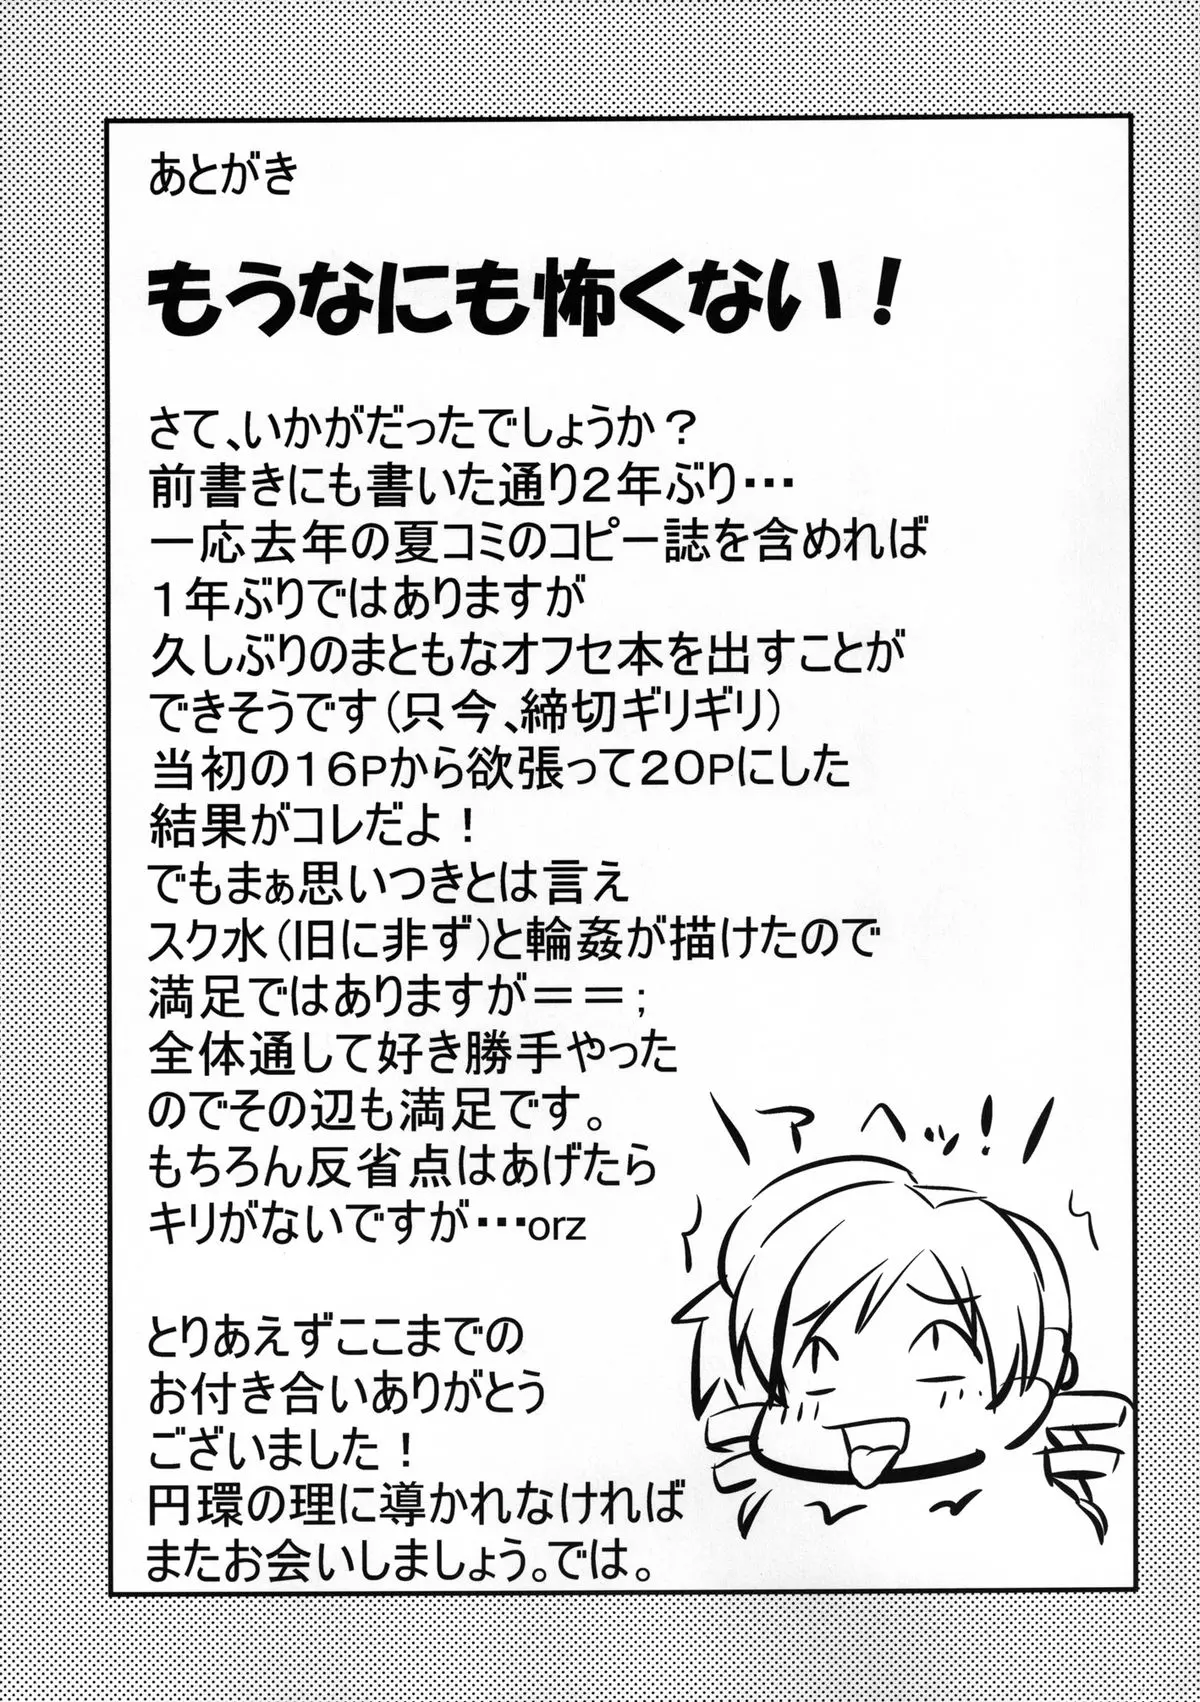 あとがき
もうなにも怖くない！
さて、いかがだったでしょうか？
前書きにも書いた通り２年ぶり・・・
一応去年の夏コミのコピー誌を含めれば
１年ぶりではありますが
久しぶりのまともなオフセ本を出すことが
できそうです（只今、締切ギリギリ）
当初の１６Pから欲張って２０Pにした
結果がコレだよ！
でもまぁ思いつきとは言え
スク水（旧に非ず）と輪姦が描けたので
満足ではありますが＝＝；
全体通して好き勝手やった
のでその辺も満足です。
もちろん反省点はあげたら
キリがないですが・・・orz
アヘッ！
とりあえずここまでの
お付き合いありがとう
ございました！
円環の理に導かれなければ
またお会いしましょう。では。